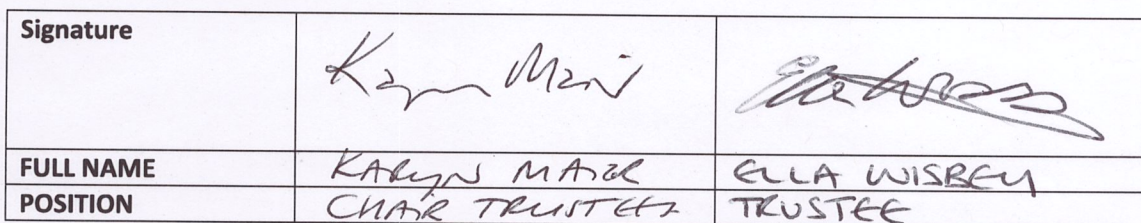 Signature Karyn Maier
FULL NAME KARYN MAIER ELLA WISBEY
POSITION CHAIR TRUSTEES TRUSTEE